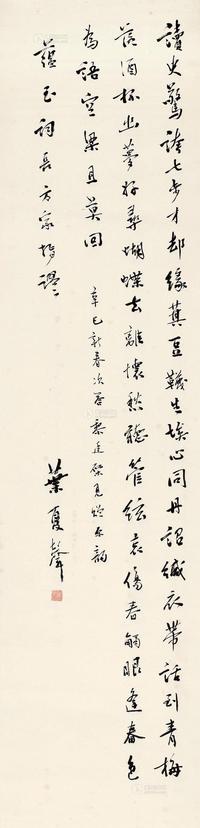 讀史驚誇七步才却緣萁豆釀生埃心同丹詔緘衣帶話到青梅
落酒杯出夢好尋蝴蝶去離懷愁聽管絃哀傷春觸眼逢春色
為語空梁且莫回
辛巳新春次答黎廷棨見贈原韻
蘊玉詞長方家埒謬
葉夏聲